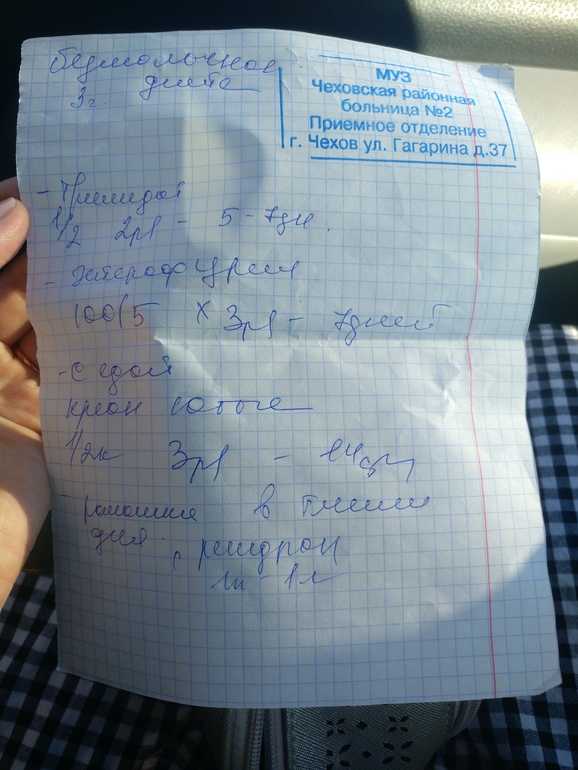 безмолочная
диета
3г.
МУЗ
Чеховская районная
больница №2
Приемное отделение
г. Чехов ул. Гагарина д.37
- Тримедат
1/2 2р/ - 5-7дн.
- Энтерофурил
100/5 х 3р/ - 7дней
- с едой
креон
1/2к 3р/ - 14дн
- ромашка в течении
дня. регидрон
1п - 1л